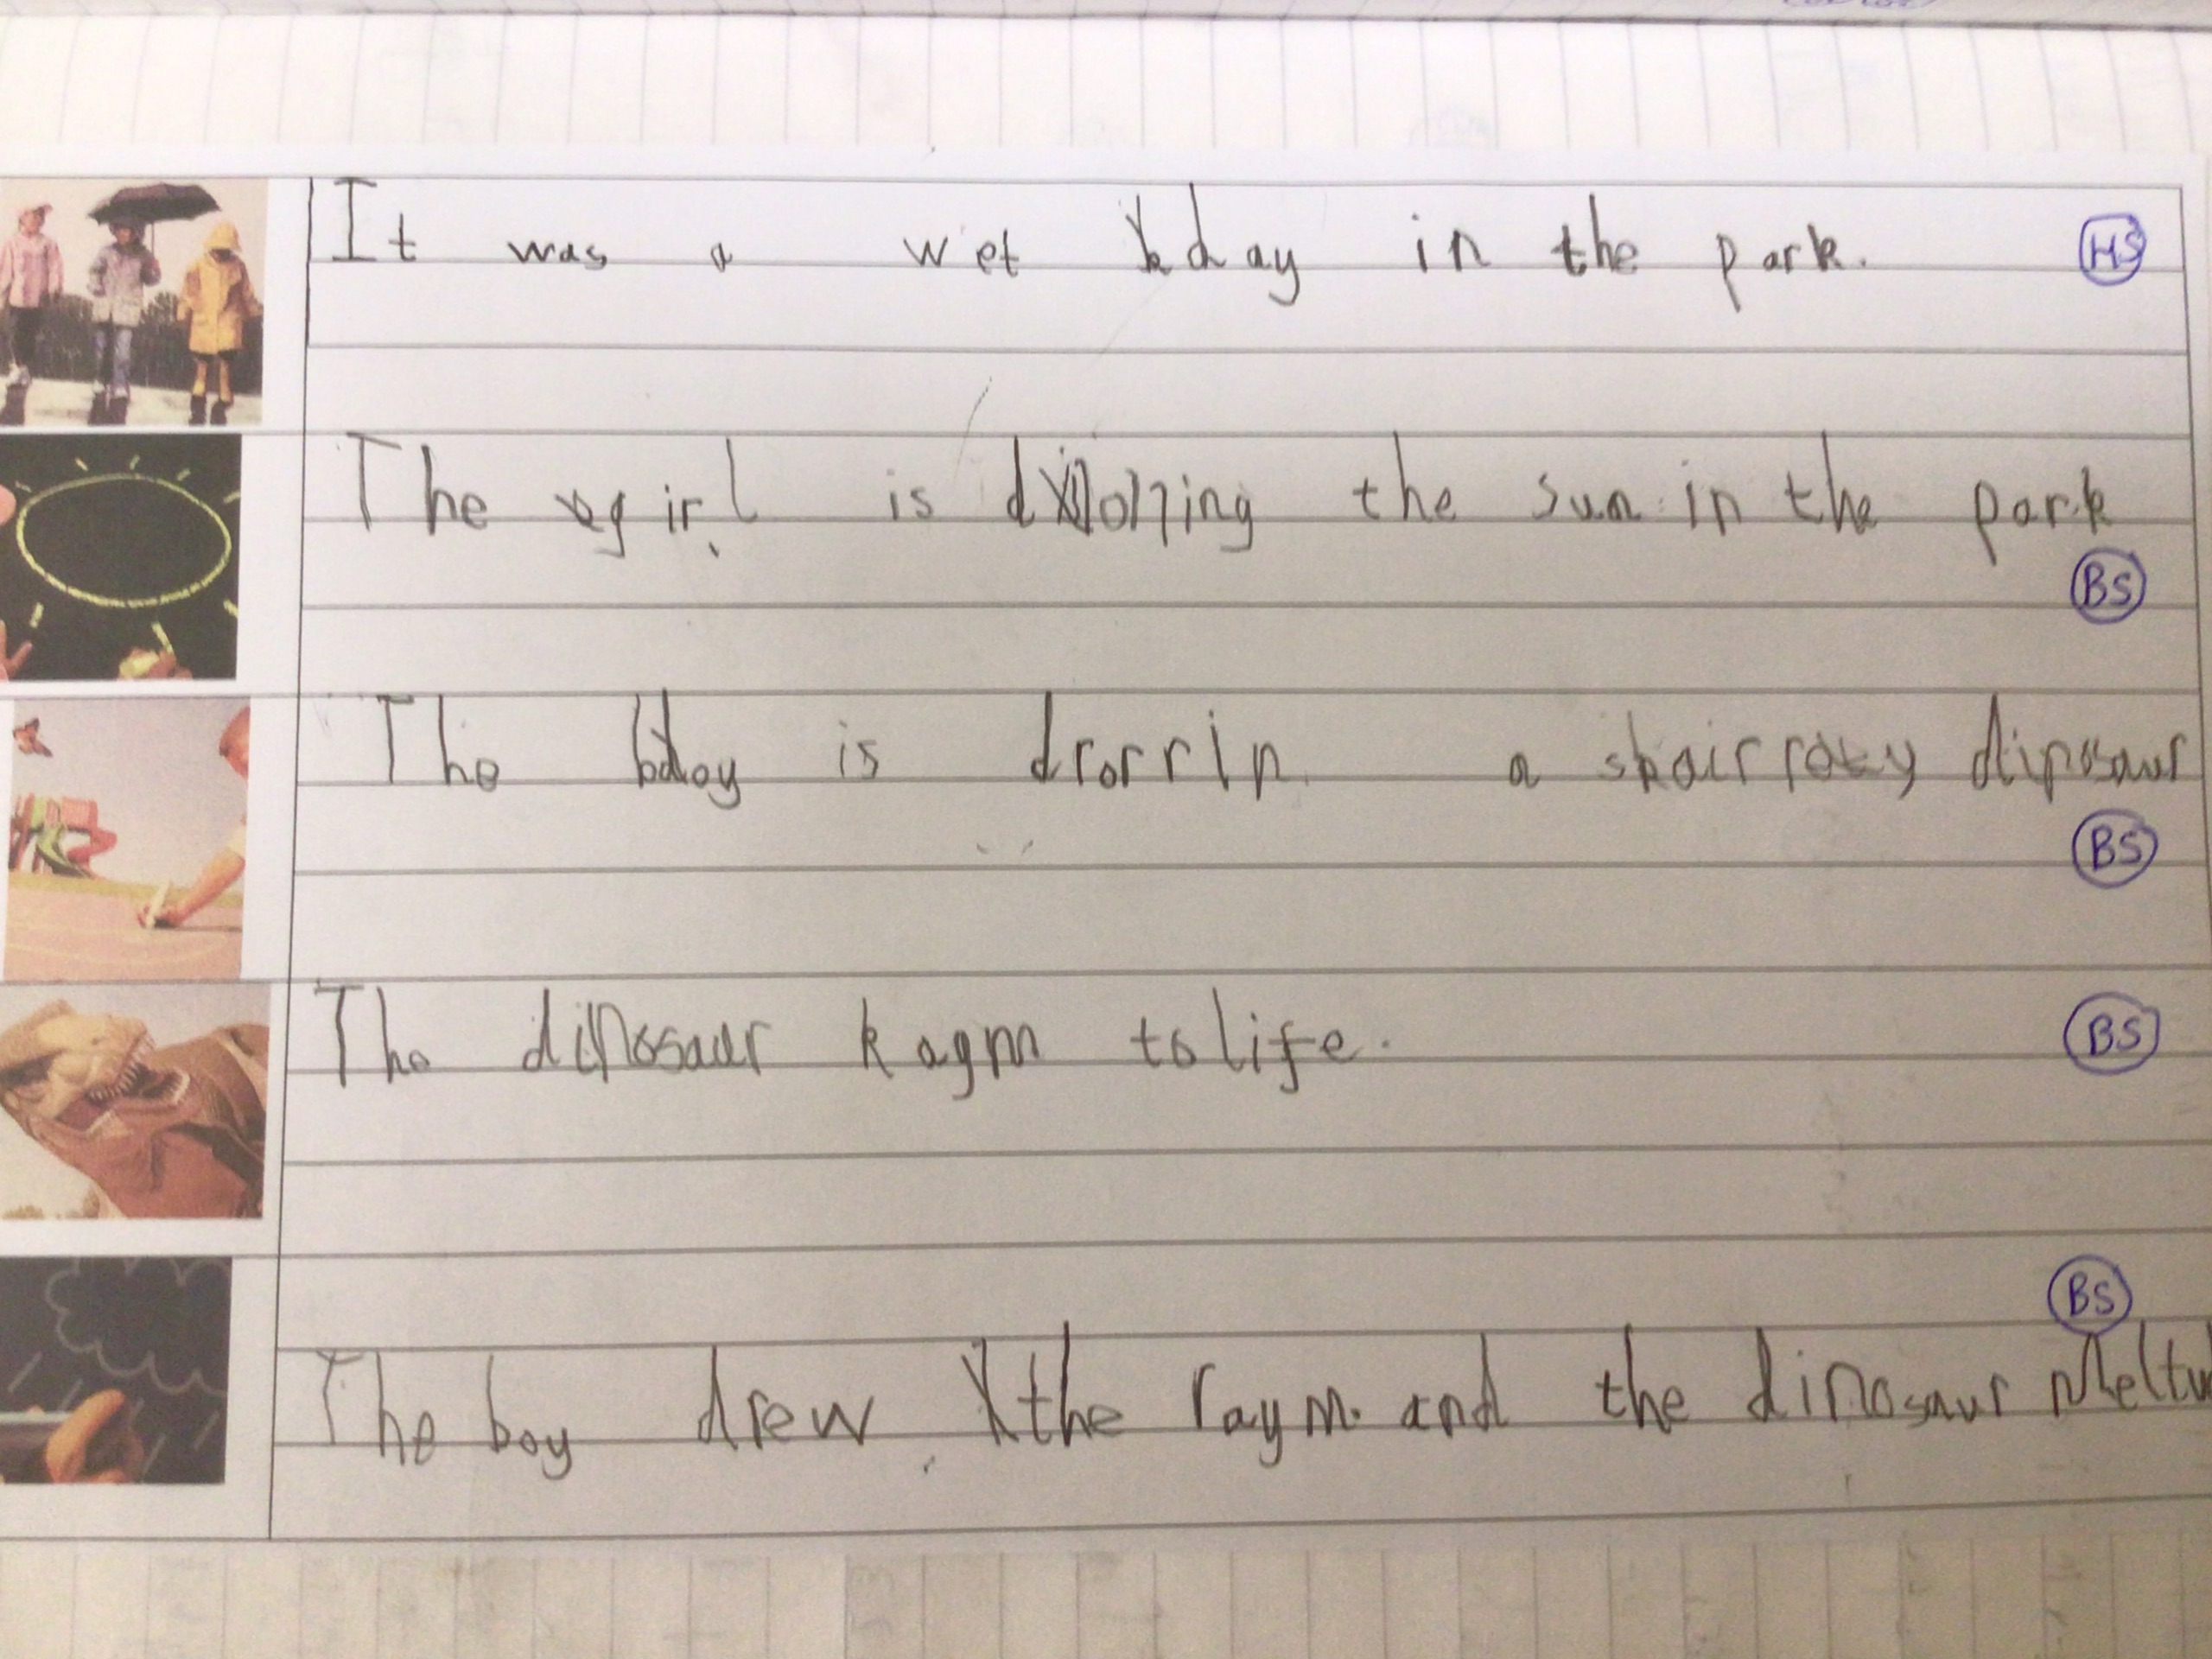 It was a wet day in the park. HS
The girl is the sun in the park
BS
The boy is drorrin a dinosaur
BS
The dinosaur kagm to life. BS
BS
The boy drew the raym. and the dinosaur